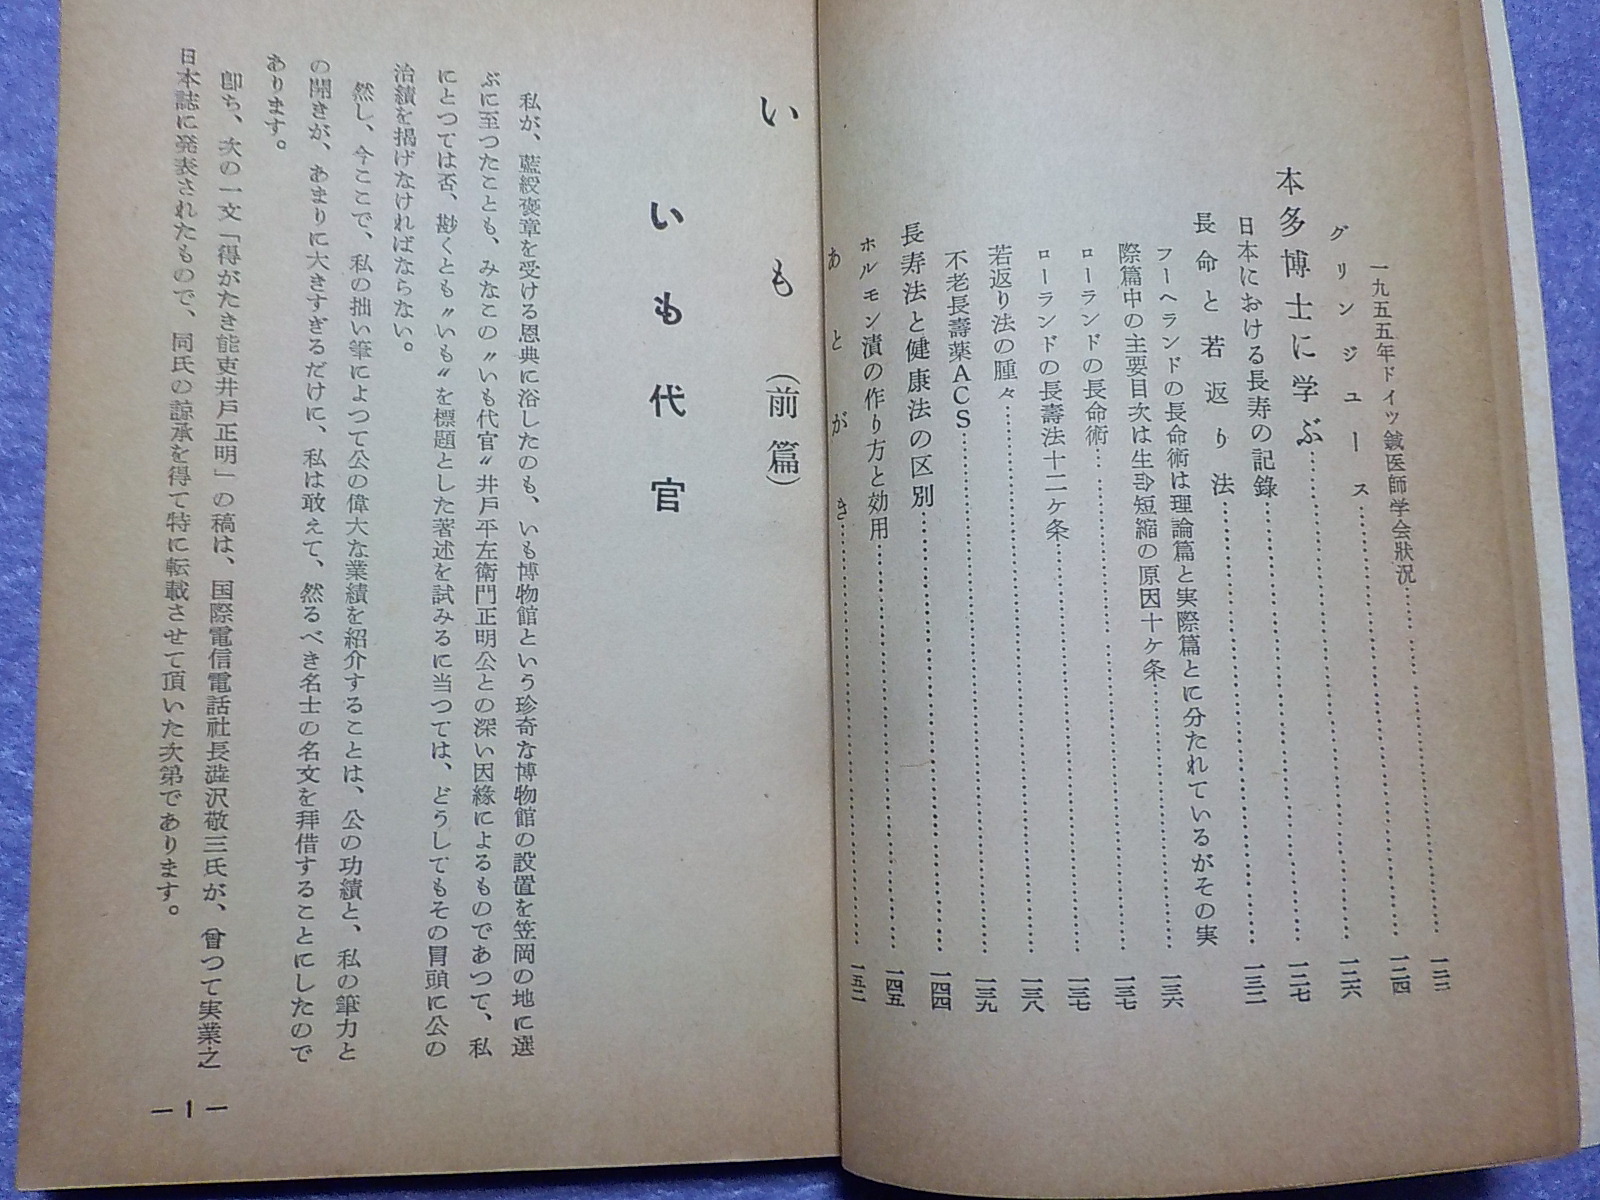 一九五五年ドイツ鍼医師学会狀況…………一二三
グリンジュース…………一二四
本多博士に学ぶ…………一二六
日本における長寿の記錄…………一二七
長命と若返り法…………一三二
フーヘランドの長命術は理論篇と実際篇とに分たれているがその実
際篇中の主要目次は生命短縮の原因十ヶ条…………一三六
ローランドの長命術…………一三七
ローランドの長壽法十二ヶ条…………一三七
若返り法の種々…………一三八
不老長壽薬ACS…………一三九
長寿法と健康法の区別…………一四四
ホルモン漬の作り方と効用…………一四五
あとがき…………一五二
いも（前篇）
いも代官
私が、藍綬褒章を受ける恩典に浴したのも、いも博物館という珍奇な博物館の設置を笠岡の地に選
ぶに至つたことも、みなこの〝いも代官〟井戸平左衛門正明公との深い因緣によるものであつて、私
にとつては否、尠くとも〝いも〟を標題とした著述を試みるに当つては、どうしてもその冒頭に公の
治績を掲げなければならない。
然し、今ここで、私の拙い筆によつて公の偉大な業績を紹介することは、公の功績と、私の筆力と
の開きが、あまりに大きすぎるだけに、私は敢えて、然るべき名士の名文を拜借することにしたので
あります。
卽ち、次の一文「得がたき能吏井戸正明」の稿は、国際電信電話社長澁沢敬三氏が、曾つて実業之
日本誌に発表されたもので、同氏の諒承を得て特に転載させて頂いた次第であります。
―1―